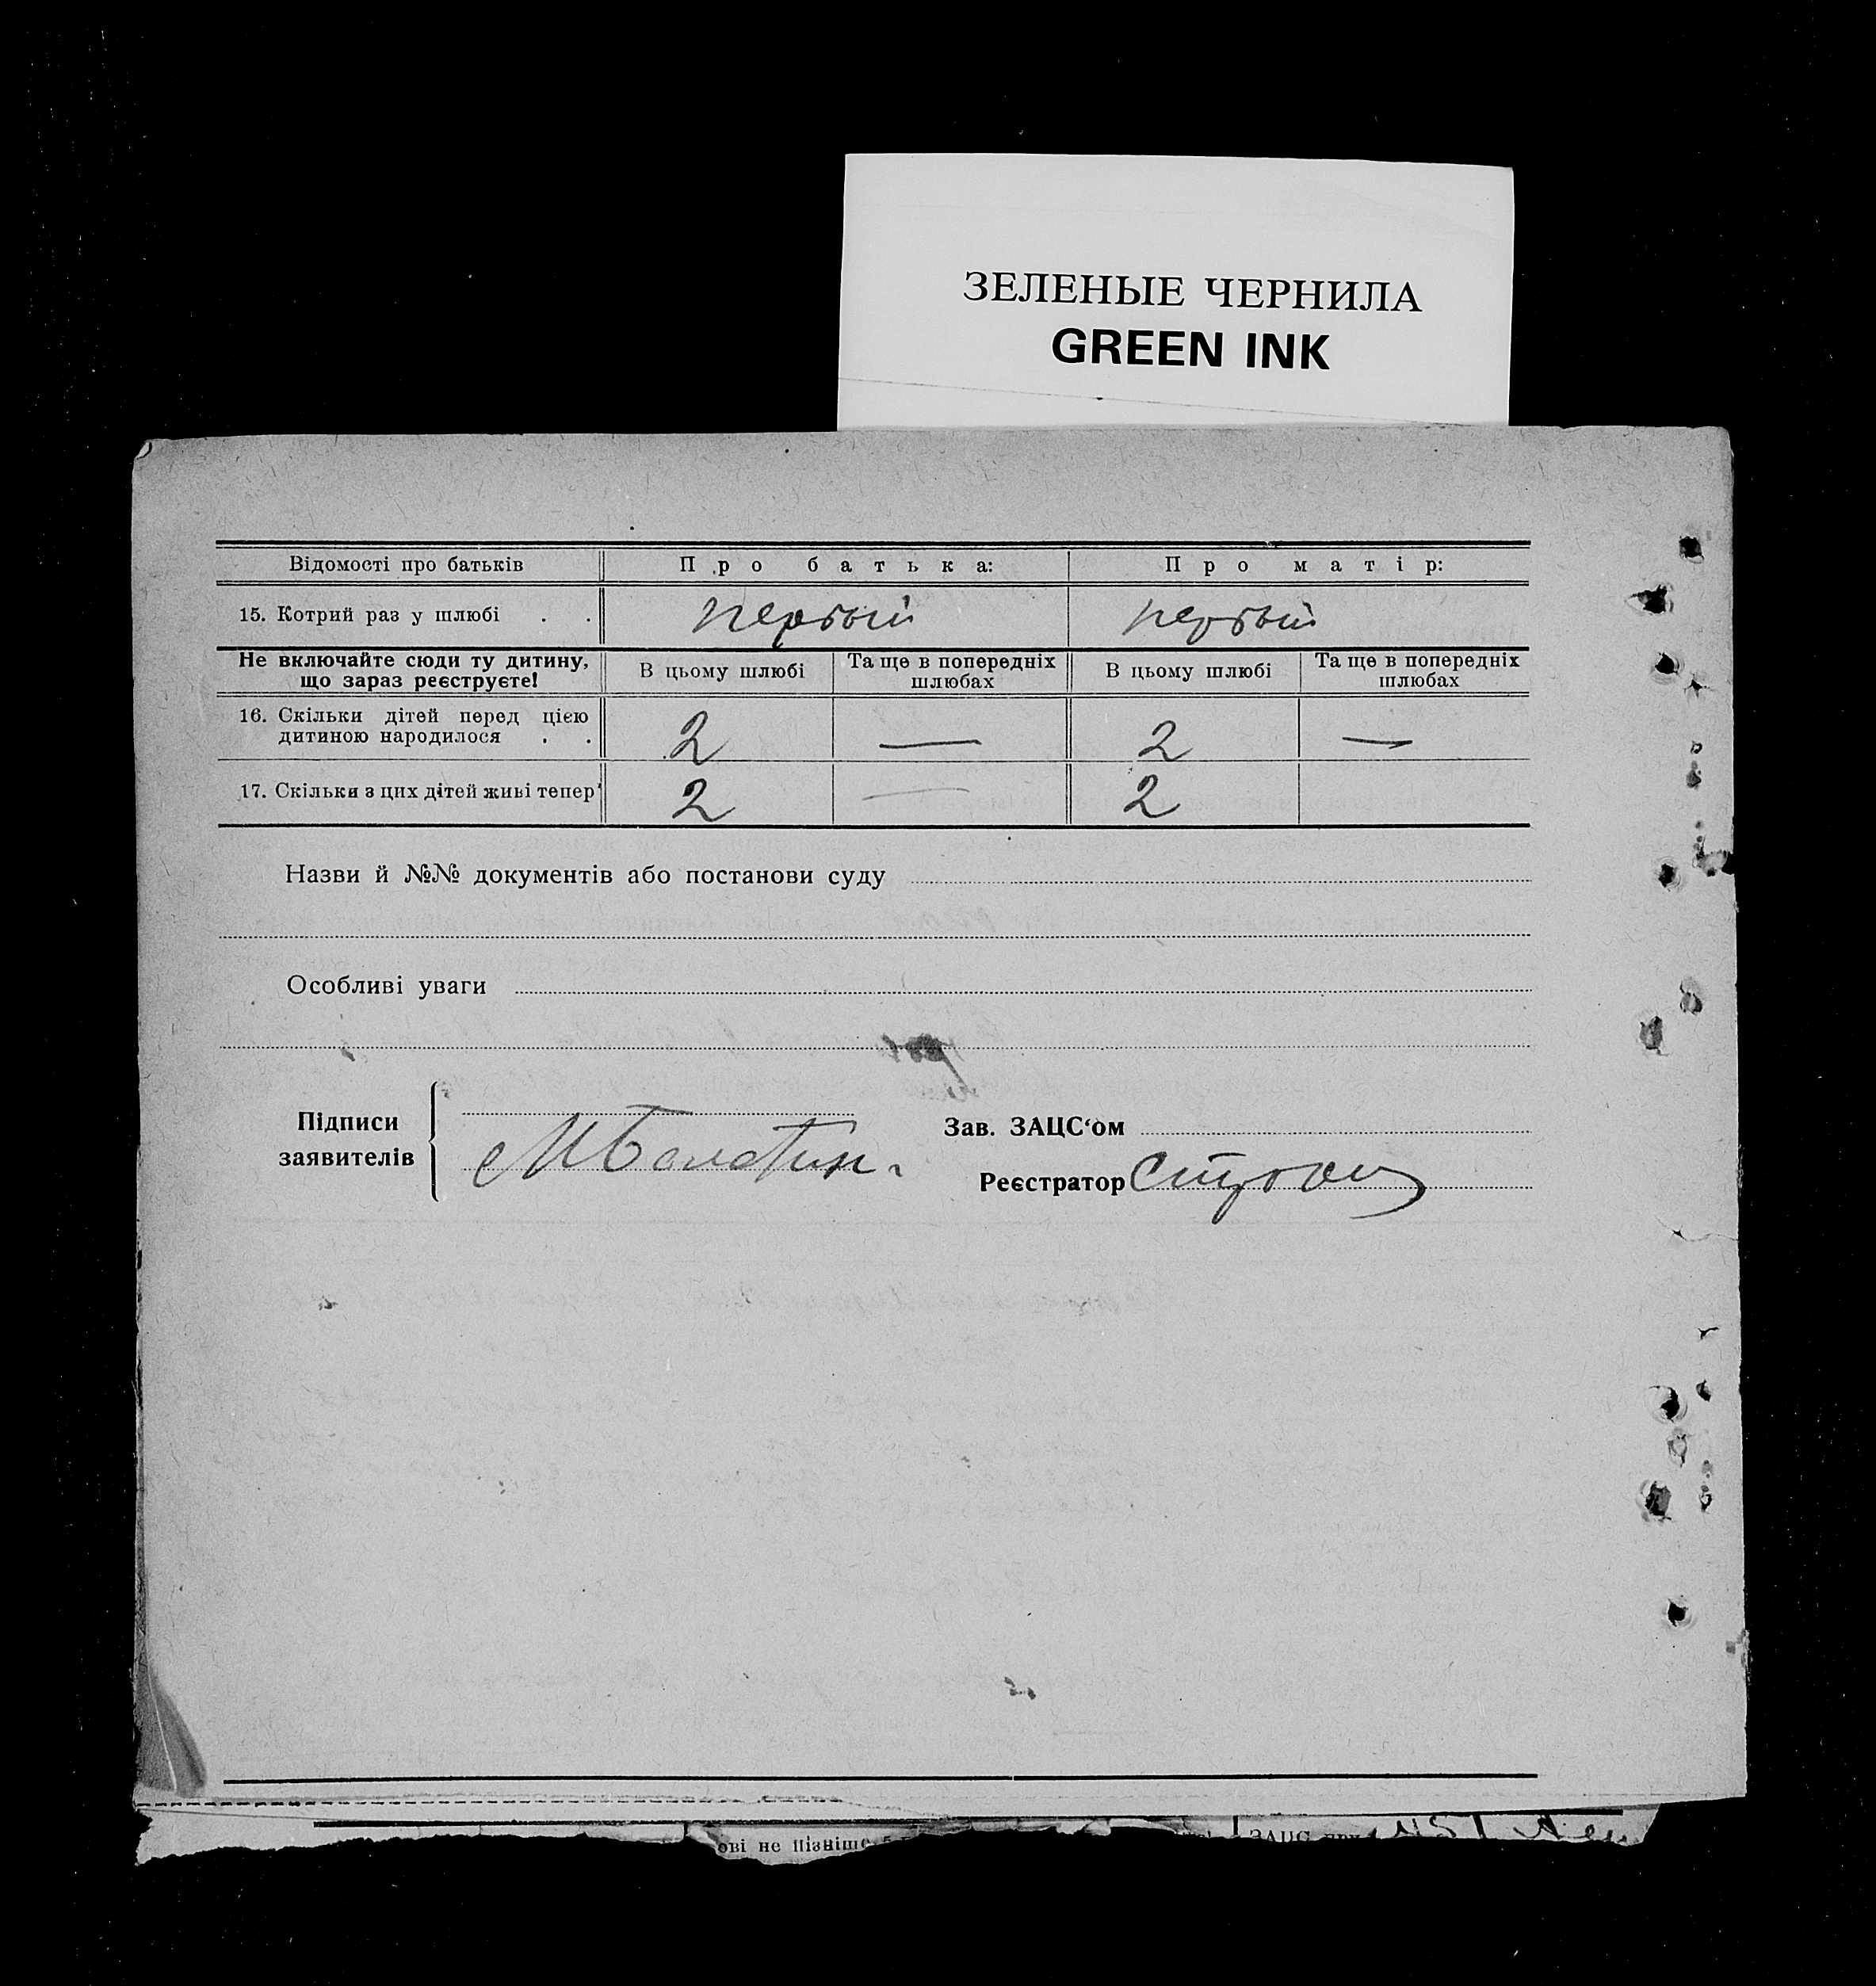 ЗЕЛЕНЫЕ ЧЕРНИЛА
GREEN INK
Відомості про батьків Про батька: Про матір:
15. Котрий раз у шлюбі . . первый первый
Не включайте сюди ту дитину, що зараз реєструєте! В цьому шлюбі Та ще в попередніх шлюбах В цьому шлюбі Та ще в попередніх шлюбах
16. Скільки дітей перед цією дитиною народилося . . 2 — 2 —
17. Скільки з цих дітей живі тепер 2 — 2
Назви й №№ документів або постанови суду
Особливі уваги
Підписи заявителів
Зав. ЗАЦС‘ом
Реєстратор
ові не пізніше